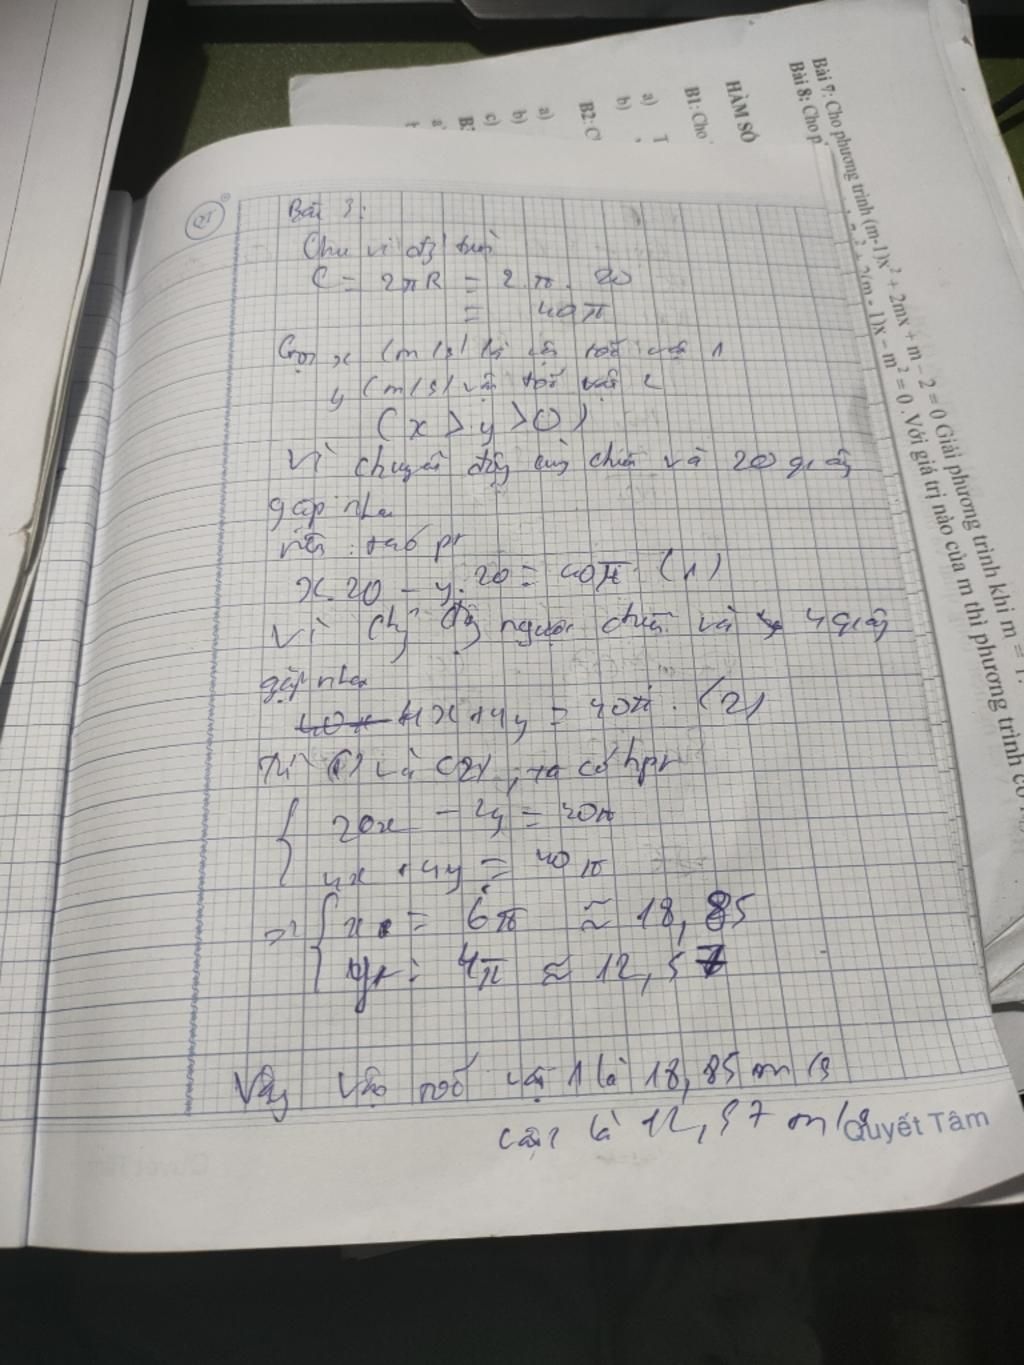 Bài 7: Cho phương trình (m-1)x² + 2mx + m - 2 = 0 Giải phương trình khi m = 1.
Bài 8: Cho p
2(m - 1)x - m² = 0. Với giá trị nào của m thì phương trình có
HÀM SỐ
B1: Cho
a) T
b)
B2: C
a)
b)
c)
Bài 3:
Chu vi đg tròn
C = 2πR = 2.π.20
= 40π
Gọi x (m/s) là vận tốc vật 1
y (m/s) vận tốc vật 2
(x > y > 0)
Vì chuyển động cùng chiều và 20 giây
gặp nhau
nên ta có pt
x.20 - y.20 = 40π (1)
Vì chuyển động ngược chiều và 4 giây
gặp nhau
4x + 4y = 40π (2)
Từ (1) và (2), ta có hpt
20x - 2y = 40π
4x + 4y = 40π
=> x = 6π ≈ 18,85
y = 4π ≈ 12,57
Vậy vận tốc vật 1 là 18,85 m/s
vật 2 là 12,57 m/s
Quyết Tâm